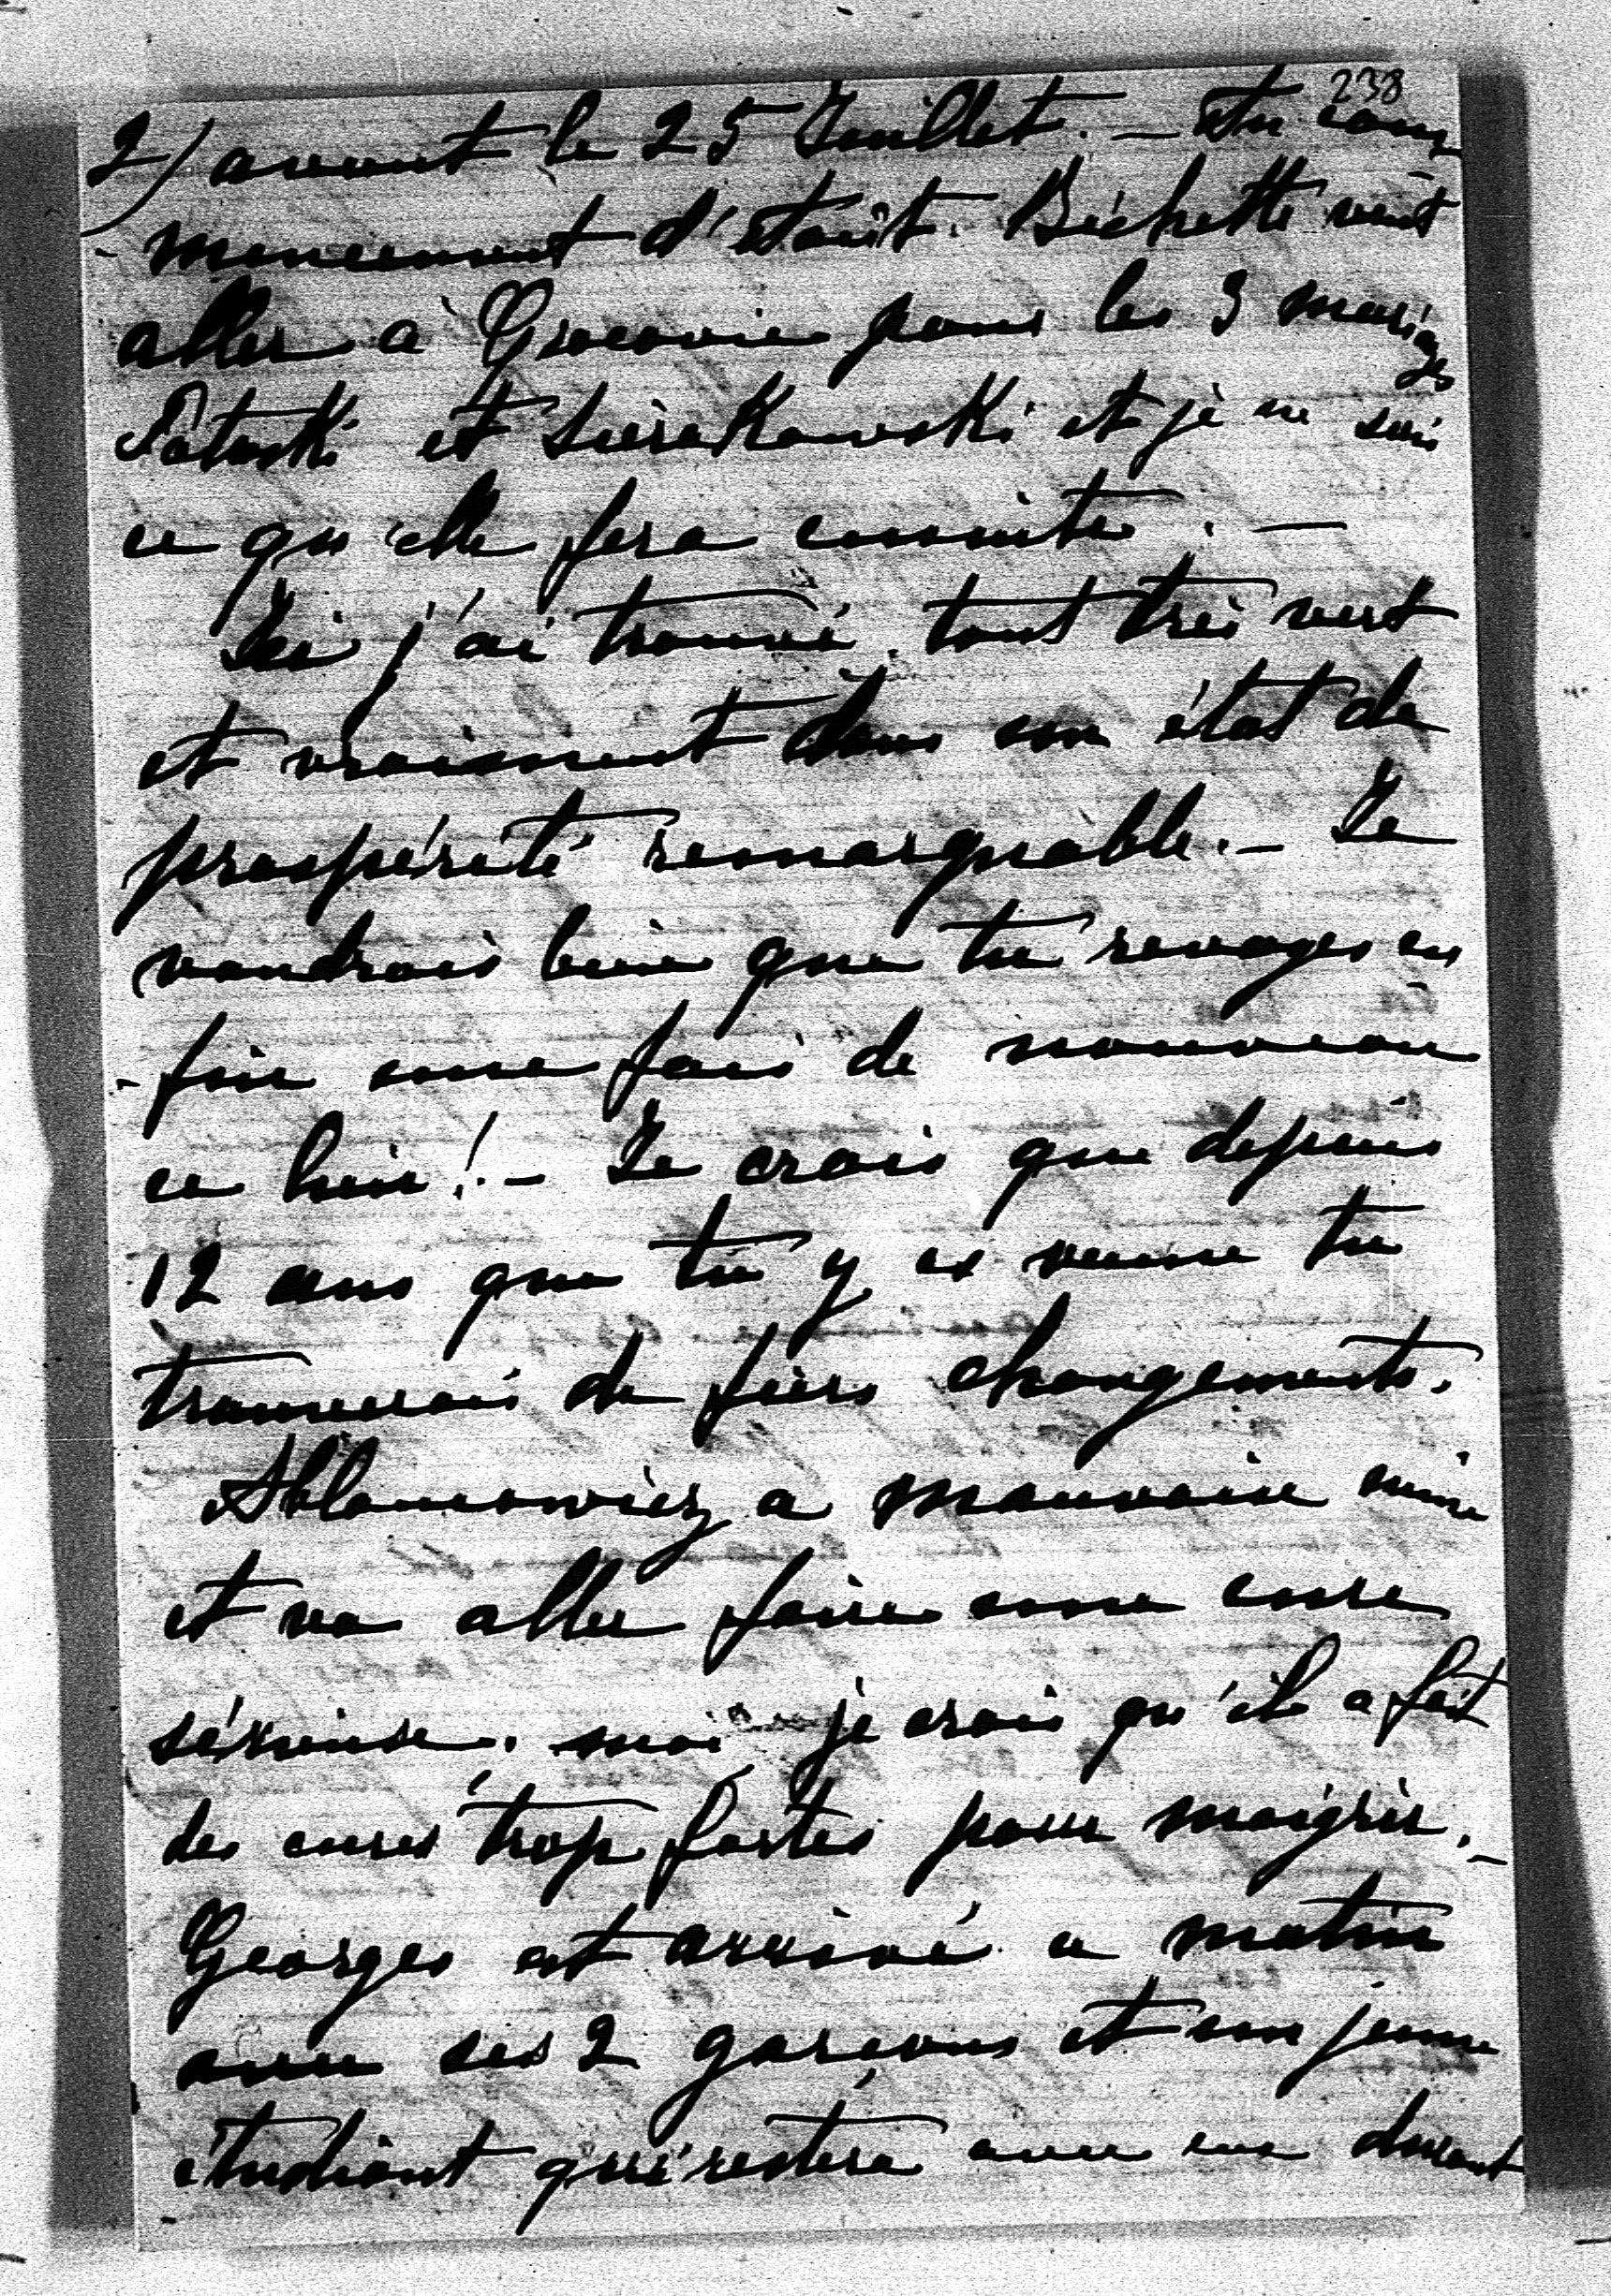 238
2) avant le 25 Juillet. — Au com
- mencement d'Août. Bichette veut
aller à Cracovie pour les 3 mariages
Potocki et Sierakowski et je ne sais
ce qu'elle fera ensuite. —
Ici j'ai trouvé tout très vert
et vraiment dans un état de
prospérité remarquable. — Je
voudrais bien que tu revoyes en
- fin une fois de nouveau
ce lieu! — Je crois que depuis
12 ans que tu y es venue tu
trouverais de fiers changements.
Ablamowicz a mauvaise mine
et va aller faire une cure
sérieuse. moi je crois qu'il a fait
des cures trop fortes pour maigrir. —
Georges est arrivé ce matin
avec ses 2 garçons et un jeune
étudiant qui restera avec eux durant